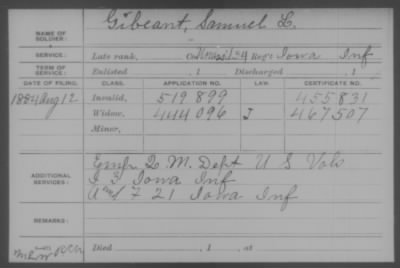 NAME OF SOLDIER: Gibeant, Samuel L.
SERVICE: Late rank, Co. 39 Reg't Iowa Inf
TERM OF SERVICE: Enlisted , 1 Discharged , 1
DATE OF FILING. CLASS. APPLICATION NO. LAW. CERTIFICATE NO.
1884 Aug 12 Invalid, 519.899 455.831
Widow, 444 096 J 467507
Minor,
ADDITIONAL SERVICES: Emp Q. M. Dept U S Vols
I 3 Iowa Inf
And F 21 Iowa Inf
REMARKS:
Died , 1 , at